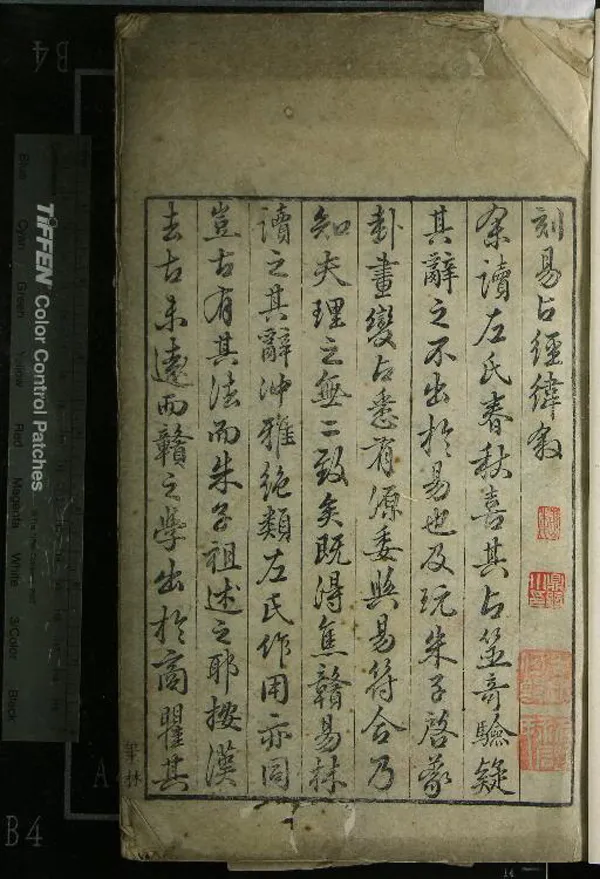 刻易占經緯敘
余讀左氏春秋喜其占筮奇驗疑
其辭之不出於易也及玩朱子啓蒙
卦畫變占悉有源委與易符合乃
知夫理之無二致矣既得焦贛易林
讀之其辭沖雅絕類左氏作用亦同
豈古有其法而朱子祖述之耶按漢
去古未遠而贛之學出於商瞿其
B4
B4
A
TIFFEN Color Control Patches
Blue Cyan Green Yellow Red Magenta White 3/Color Black